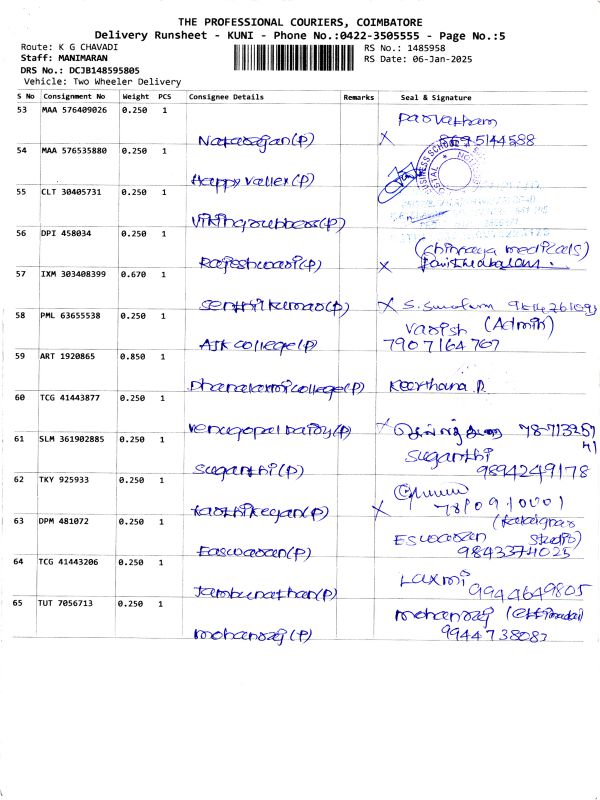 THE PROFESSIONAL COURIERS, COIMBATORE
Delivery Runsheet - KUNI - Phone No.:0422-3505555 - Page No.:5
Route: K G CHAVADI
RS No.: 1485958
Staff: MANIMARAN
RS Date: 06-Jan-2025
DRS No.: DCJB148595805
Vehicle: Two Wheeler Delivery
S No Consignment No Weight PCS Consignee Details Remarks Seal & Signature
53 MAA 576409026 0.250 1
Natarajan(P)
54 MAA 576535880 0.250 1
Happy valley(P)
BUSINESS SCHOOL
55 CLT 30405731 0.250 1
Viking rubbers(P)
56 DPI 458034 0.250 1
(chinnaya medicals)
Rajeshwari(P) X
57 IXM 303408399 0.670 1
Senthilkumar(P) X
58 PML 63655538 0.250 1
(Admin)
AJK college(P) 7907164767
59 ART 1920865 0.850 1
Dhanalaxmi college(P) Keerthana P.
60 TCG 41443877 0.250 1
Venugopal
61 SLM 361902885 0.250 1
Suganthi
Suganthi(P) 9894249178
62 TKY 925933 0.250 1
Karthikeyan(P) X 7810910001
63 DPM 481072 0.250 1
Eswaran
Easwaran(P) 9843374025
64 TCG 41443206 0.250 1
Laxmi
Jambunathan(P) 9944649805
65 TUT 7056713 0.250 1
mohanraj
mohanraj(P)